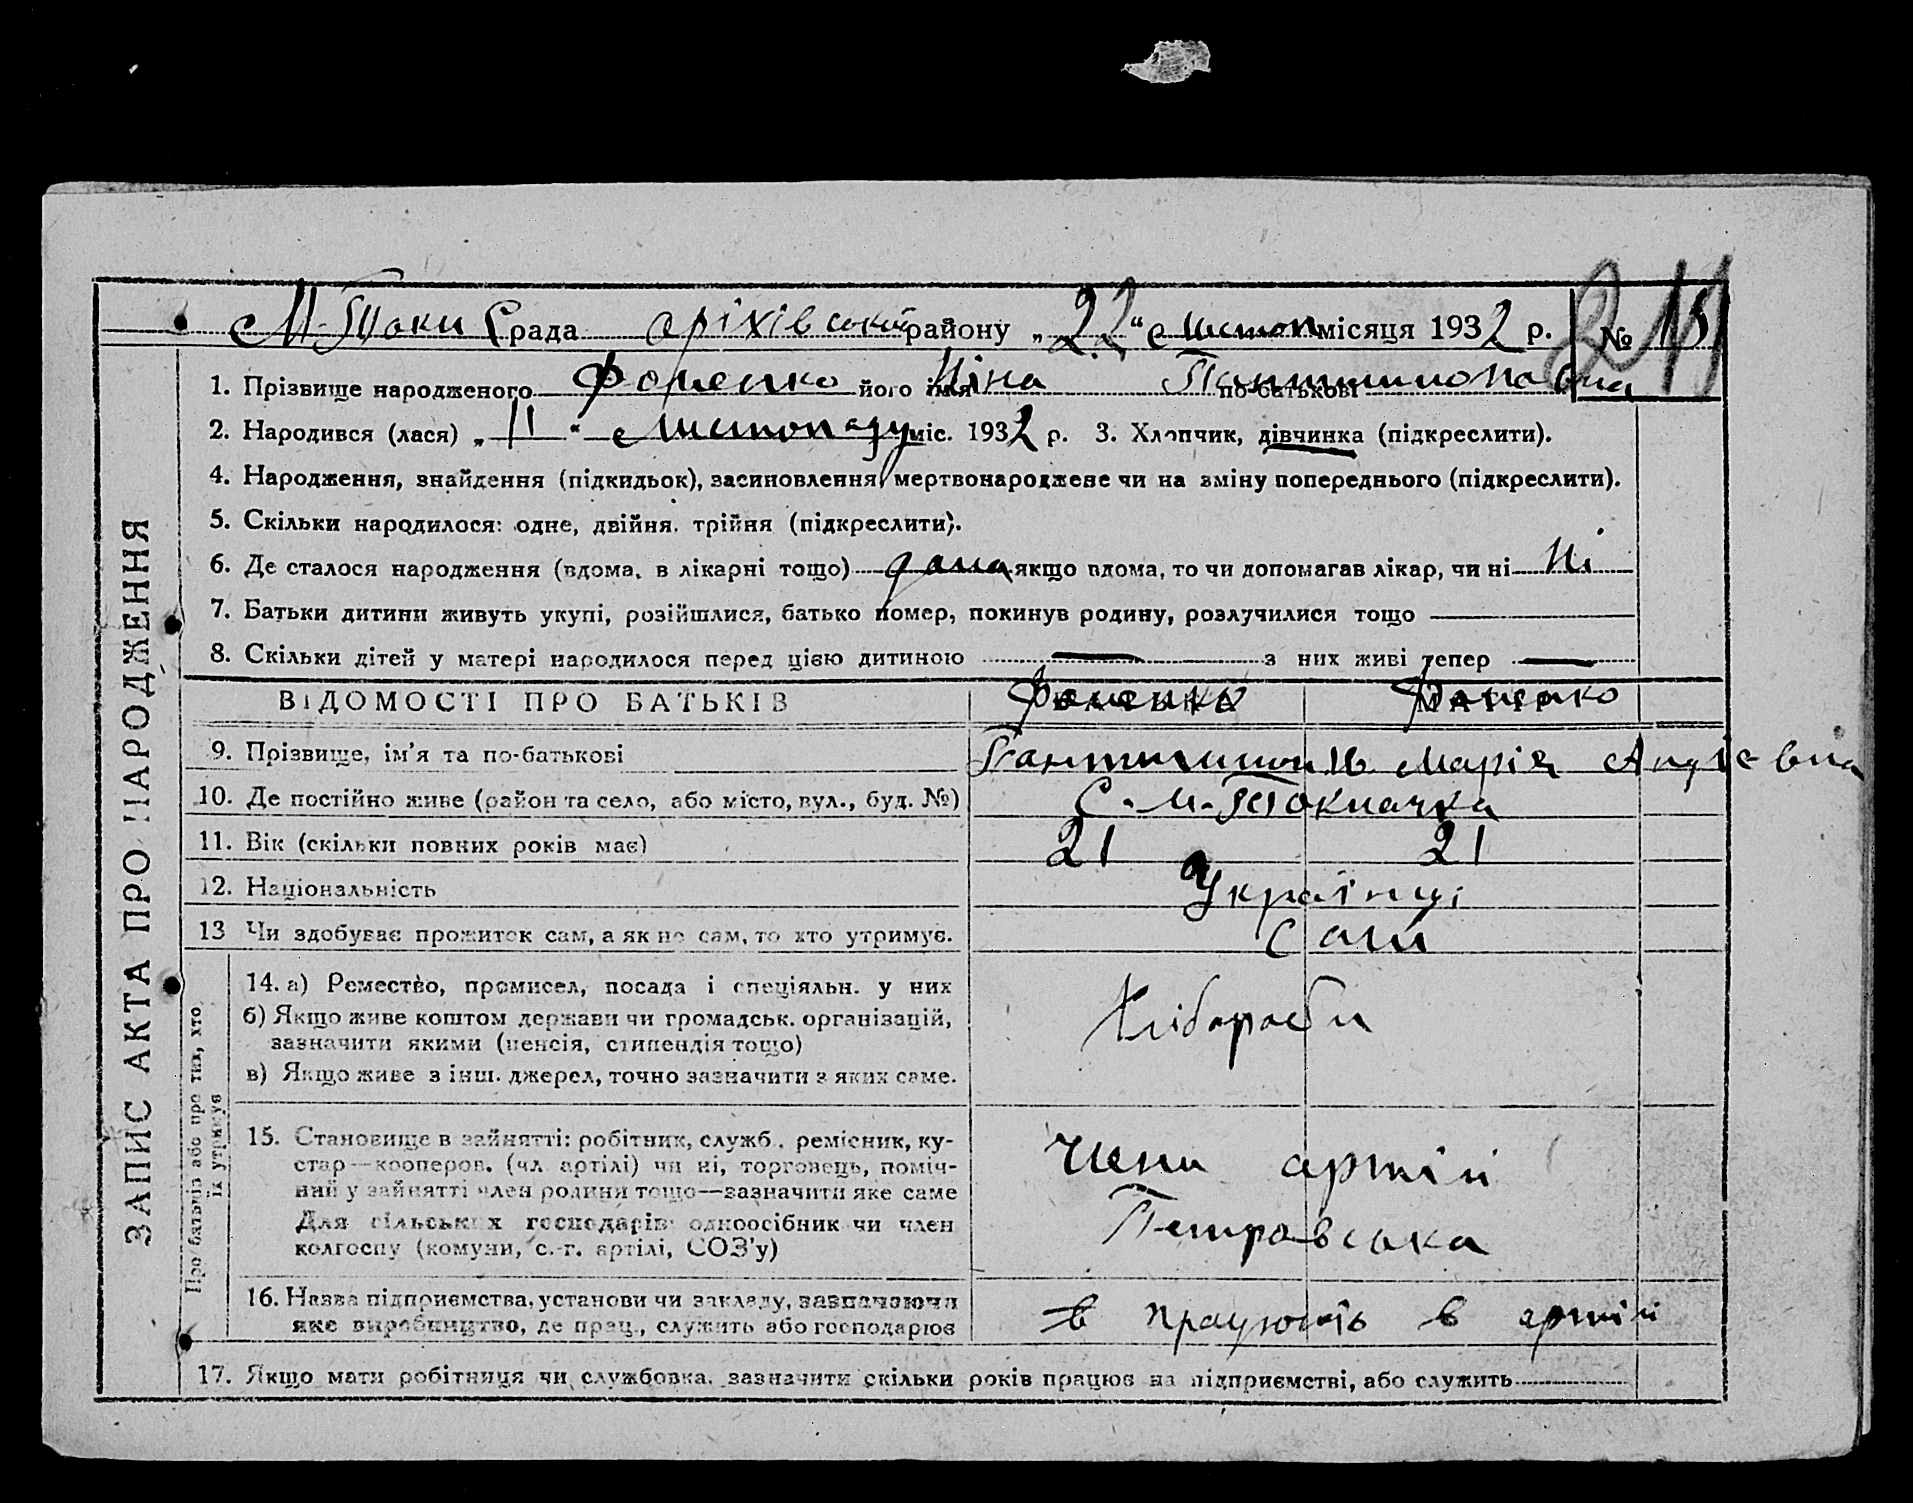 М-Токм С рада оріхівської району „22“ Листоп місяця 1932 р. № 15
211
1. Прізвище народженого Фоменко його ім'я Ніна по-батькові
2. Народився (лася) „11“ Листопаду міс. 1932 р. 3. Хлопчик, дівчинка (підкреслити).
4. Народження, знайдення (підкидьок), засиновлення, мертвонароджене чи на зміну попереднього (підкреслити).
5. Скільки народилося: одне, двійня, трійня (підкреслити).
6. Де сталося народження (вдома, в лікарні тощо) дома якщо вдома, то чи допомагав лікар, чи ні Ні
7. Батьки дитини живуть укупі, розійшлися, батько помер, покинув родину, розлучилися тощо
8. Скільки дітей у матері народилося перед цією дитиною — з них живі тепер —
ВІДОМОСТІ ПРО БАТЬКІВ Фоменко Фоменко
9. Прізвище, ім'я та по-батькові Марія
10. Де постійно живе (район та село, або місто, вул., буд. №) С. М-Токмачка
11. Вік (скільки повних років має) 21 21
12. Національність Українці
13 Чи здобуває прожиток сам, а як не сам, то хто утримує. Сами
14. а) Ремество, промисел, посада і спеціяльн. у них
б) Якщо живе коштом держави чи громадськ. організацій,
зазначити якими (пенсія, стипендія тощо)
в) Якщо живе з інш. джерел, точно зазначити з яких саме.
Хлібороби
15. Становище в зайнятті: робітник, служб., ремісник, ку-
стар—кооперов. (чл. артілі) чи ні, торговець, поміч-
ний у зайнятті член родини тощо—зазначити яке саме
Для сільських господарів: одноосібник чи член
колгоспу (комуни, с.-г. артілі, СОЗ'у)
Члени артілі
Петровська
16. Назва підприємства, установи чи закладу, зазначаючи
яке виробництво, де прац., служить або господарює
в працюють в артілі
17. Якщо мати робітниця чи службовка, зазначити скільки років працює на підприємстві, або служить
ЗАПИС АКТА ПРО НАРОДЖЕННЯ
Про батьків або про тих, хто
їх утримує